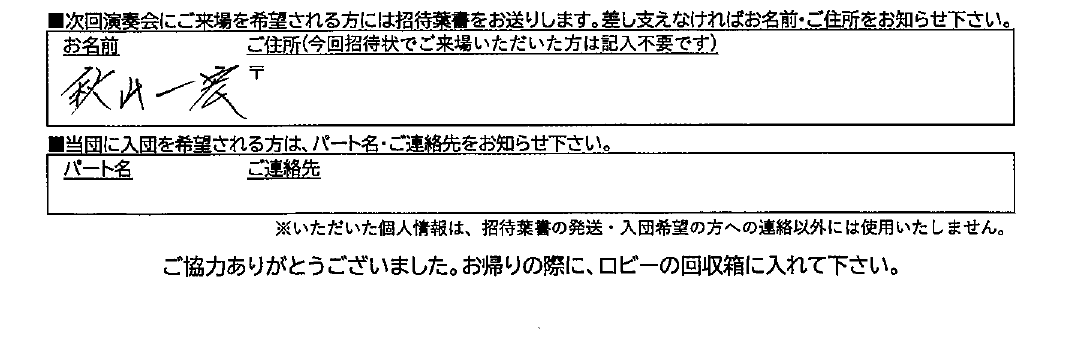 ■次回演奏会にご来場を希望される方には招待葉書をお送りします。差し支えなければお名前・ご住所をお知らせ下さい。
お名前 ご住所(今回招待状でご来場いただいた方は記入不要です)
秋山一 〒
■当団に入団を希望される方は、パート名・ご連絡先をお知らせ下さい。
パート名 ご連絡先
※いただいた個人情報は、招待葉書の発送・入団希望の方への連絡以外には使用いたしません。
ご協力ありがとうございました。お帰りの際に、ロビーの回収箱に入れて下さい。